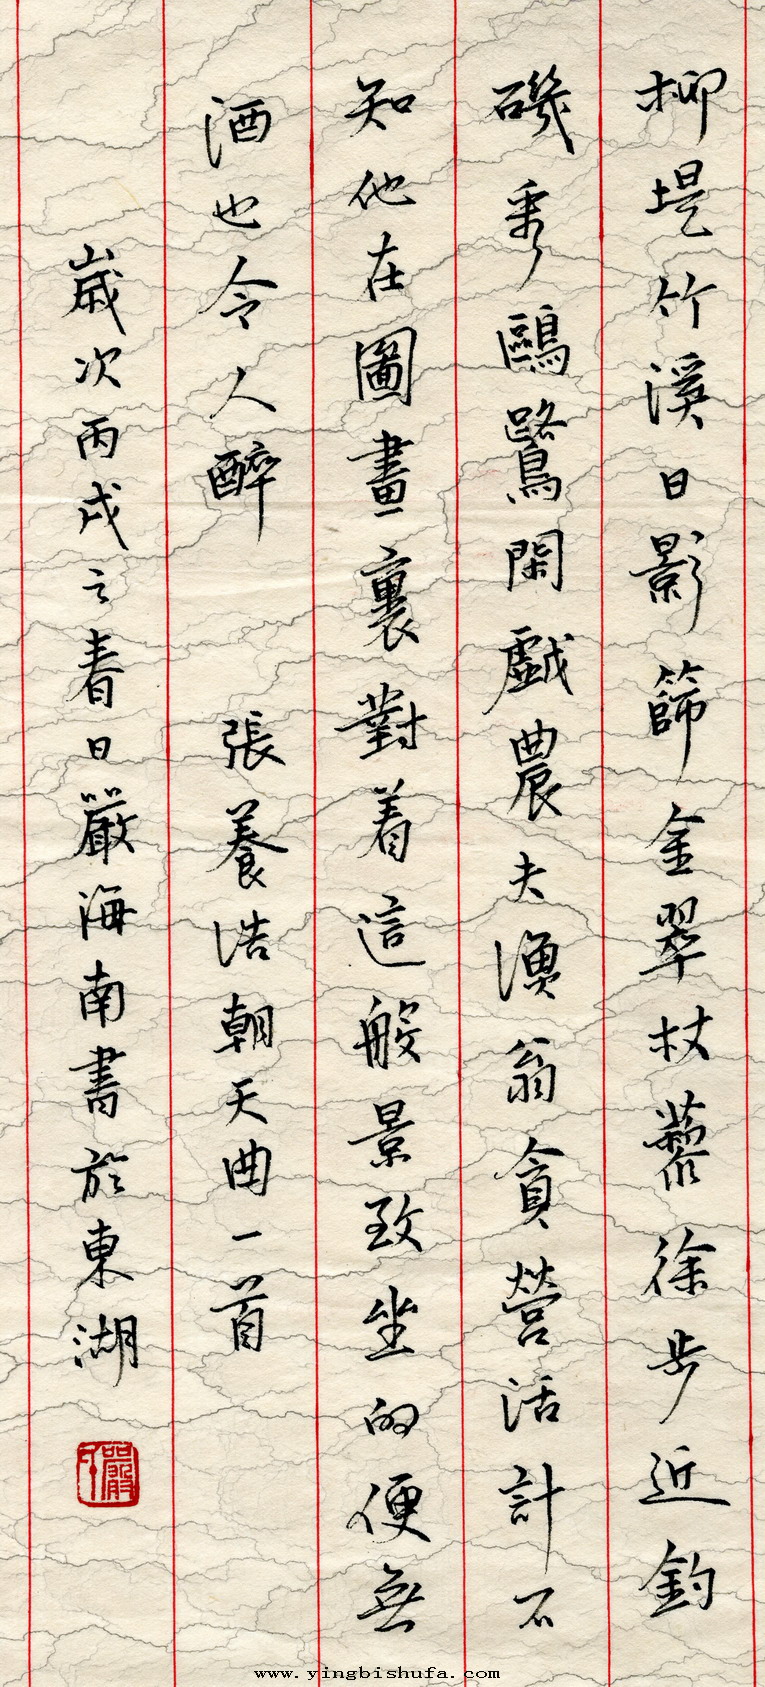 柳堤竹溪日影篩金翠杖藜徐步近釣
磯看鷗鷺閑戲農夫漁翁貪營活計不
知他在圖畫裏對着這般景致坐的便無
酒也令人醉　張養浩朝天曲一首
歲次丙戌之春日嚴海南書於東湖
www.yingbishufa.com